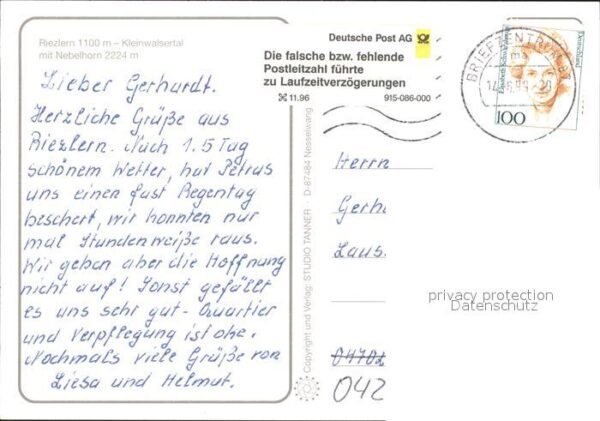 Riezlern 1100 m – Kleinwalsertal
mit Nebelhorn 2224 m
Lieber Gerhardt.
Herzliche Grüße aus
Riezlern. Nach 1.5 Tag
schönem Wetter, hat Petrus
uns einen fast Regentag
beschert, wir konnten nur
mal Stundenweiße raus.
Wir geben aber die Hoffnung
nicht auf! Sonst gefällt
es uns sehr gut - Quartier
und Verpflegung ist oke.
Nochmals viele Grüße von
Liesa und Helmut.
Copyright und Verlag: STUDIO TANNER · D-87484 Nesselwang
Deutsche Post AG
Die falsche bzw. fehlende
Postleitzahl führte
zu Laufzeitverzögerungen
11.96 915-086-000
BRIEFZENTRUM
Deutschland
100
Herrn
Gerh
Laus
privacy protection
Datenschutz
042